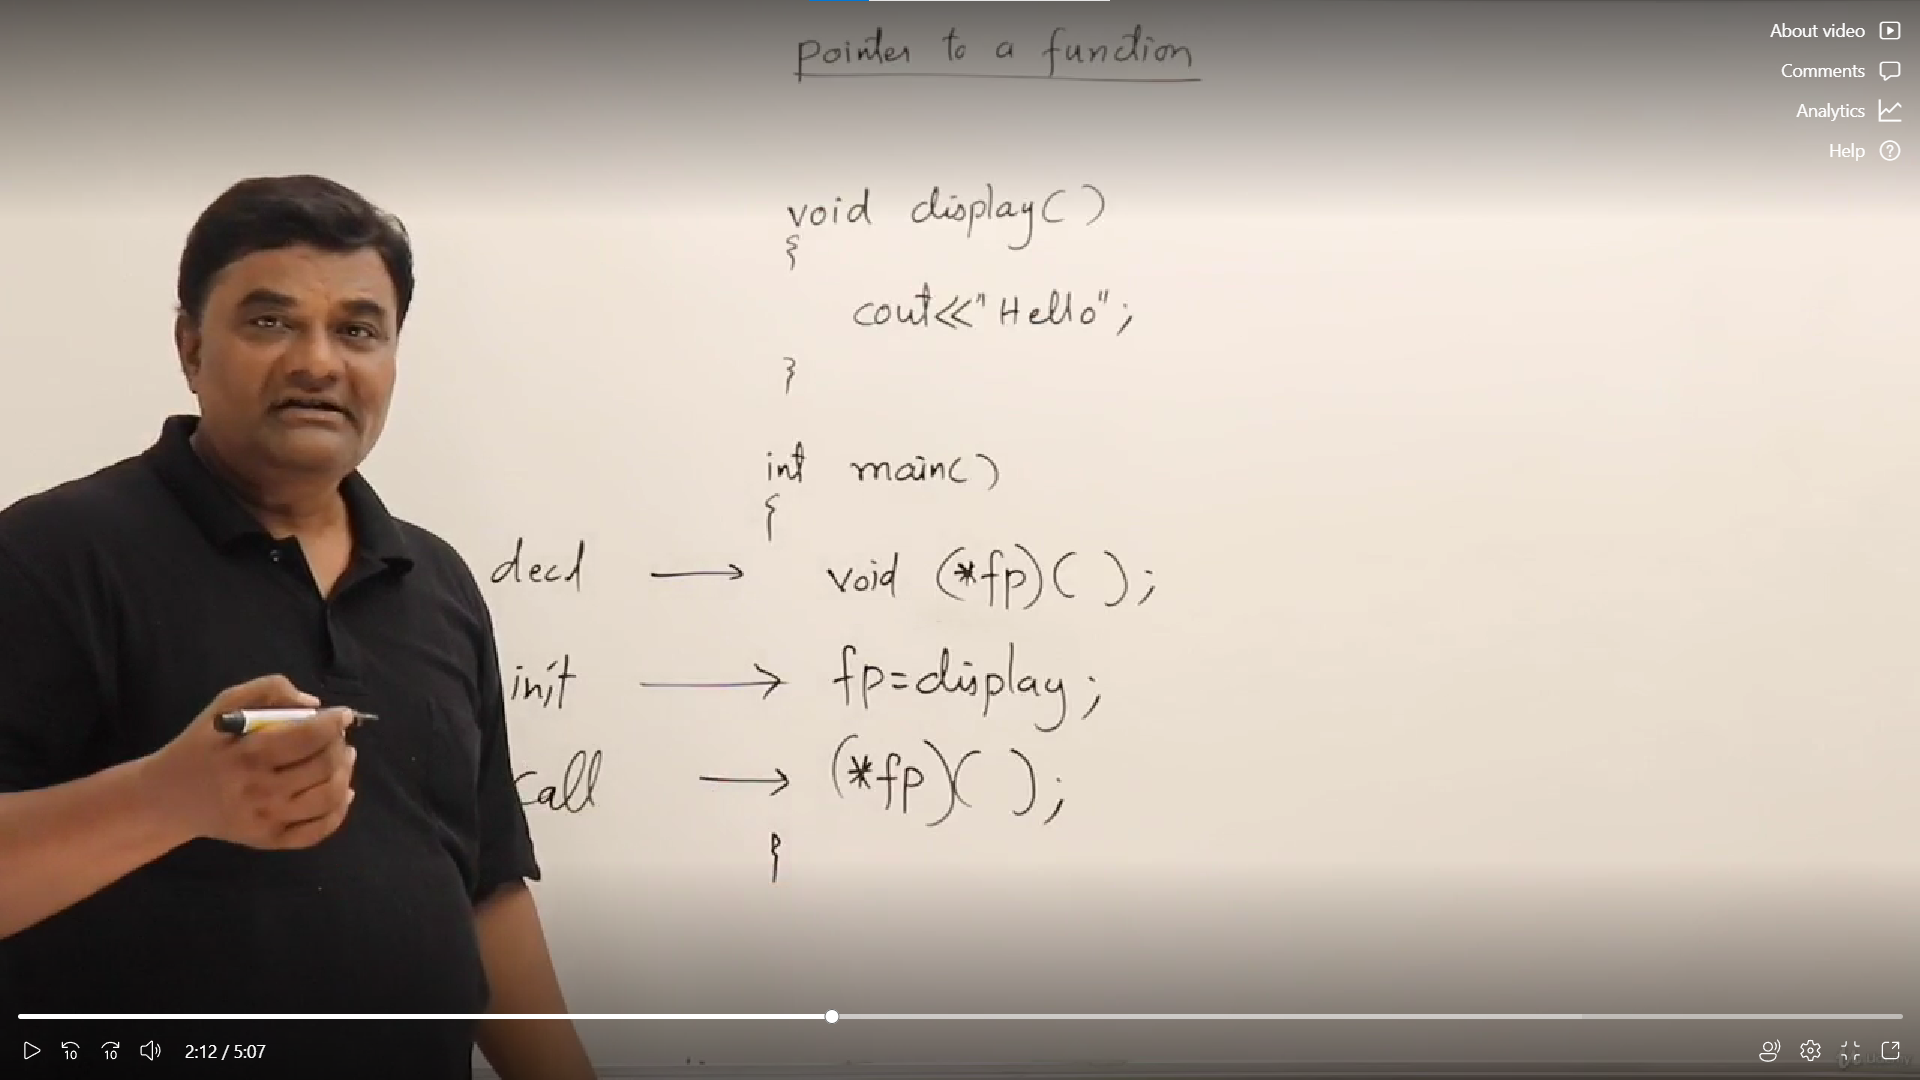 pointer to a function
About video
Comments
Analytics
Help
void display()
{
cout<<"Hello";
}
int main()
{
decl → void (*fp)();
init → fp=display;
call → (*fp)();
}
10 10 2:12 / 5:07